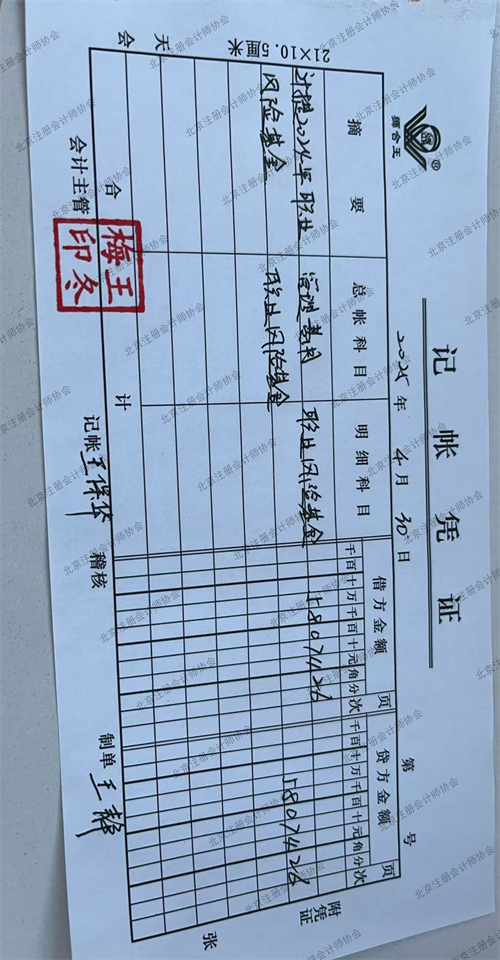 獅合王
®
记帐凭证
2025年 4月 30日 第 号
摘要 总帐科目 明细科目 借方金额 页次 贷方金额 页次
千百十万千百十元角分 千百十万千百十元角分
计提2024年职业 管理费用 职业风险基金 15807426
风险基金 职业风险基金 15807426
合 计
附凭证 张
会计主管 王梅冬印 记帐 王保华 稽核 制单 王静
天会
21×10.5厘米
北京注册会计师协会